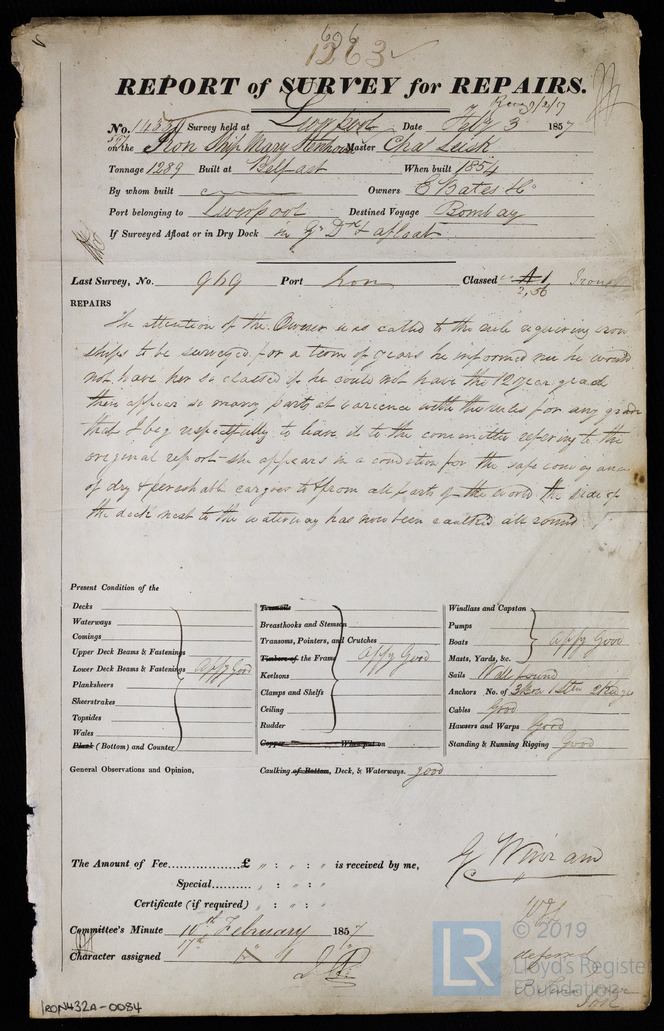 696
1263
REPORT of SURVEY for REPAIRS.
No. 14531 Survey held at Liverpool Date Feby 3 1857
on the Iron Ship Mary Stenhouse Master Chas Leisk
Tonnage 1289 Built at Belfast When built 1854
By whom built Owners E Bates & Co
Port belonging to Liverpool Destined Voyage Bombay
If Surveyed Afloat or in Dry Dock in Gg Dk & afloat
Last Survey, No. 969 Port Lon Classed A1 Iron
2,56
REPAIRS
The attention of the Owner was called to the rule requiring iron
ships to be surveyed for a term of years he informed me he would
not have her so classed if he could not have the 12 year grade
there appear so many parts at varience with the rules for any grade
that I beg respectfully to leave it to the committee refering to the
original report - she appears in a condition for the safe conveyance
of dry & perishable cargoes to & from all parts of the world the side of
the deck next to the waterway has now been caulked all round
Present Condition of the
Decks
Waterways
Comings
Upper Deck Beams & Fastenings
Lower Deck Beams & Fastenings appy Good
Planksheers
Sheerstrakes
Topsides
Wales
Plank (Bottom) and Counter
Treenails
Breasthooks and Stemson
Transoms, Pointers, and Crutches
Timbers of the Frame appy Good
Keelsons
Clamps and Shelfs
Ceiling
Rudder
Copper When put on
Windlass and Capstan
Pumps
Boats appy Good
Masts, Yards, &c.
Sails Well found
Anchors No. of 3 Bow 1 Stern 2 Kedges
Cables Good
Hawsers and Warps Good
Standing & Running Rigging Good
General Observations and Opinion, Caulking of Bottom, Deck, & Waterways. good
The Amount of Fee..................£ " : " : " is received by me,
Special.......... " : " : "
Certificate (if required) " : " : "
Committee's Minute 10th February 1857
17th
Character assigned
deferred
IRON432A-0084
LR © 2019
Lloyd's Register
Foundation